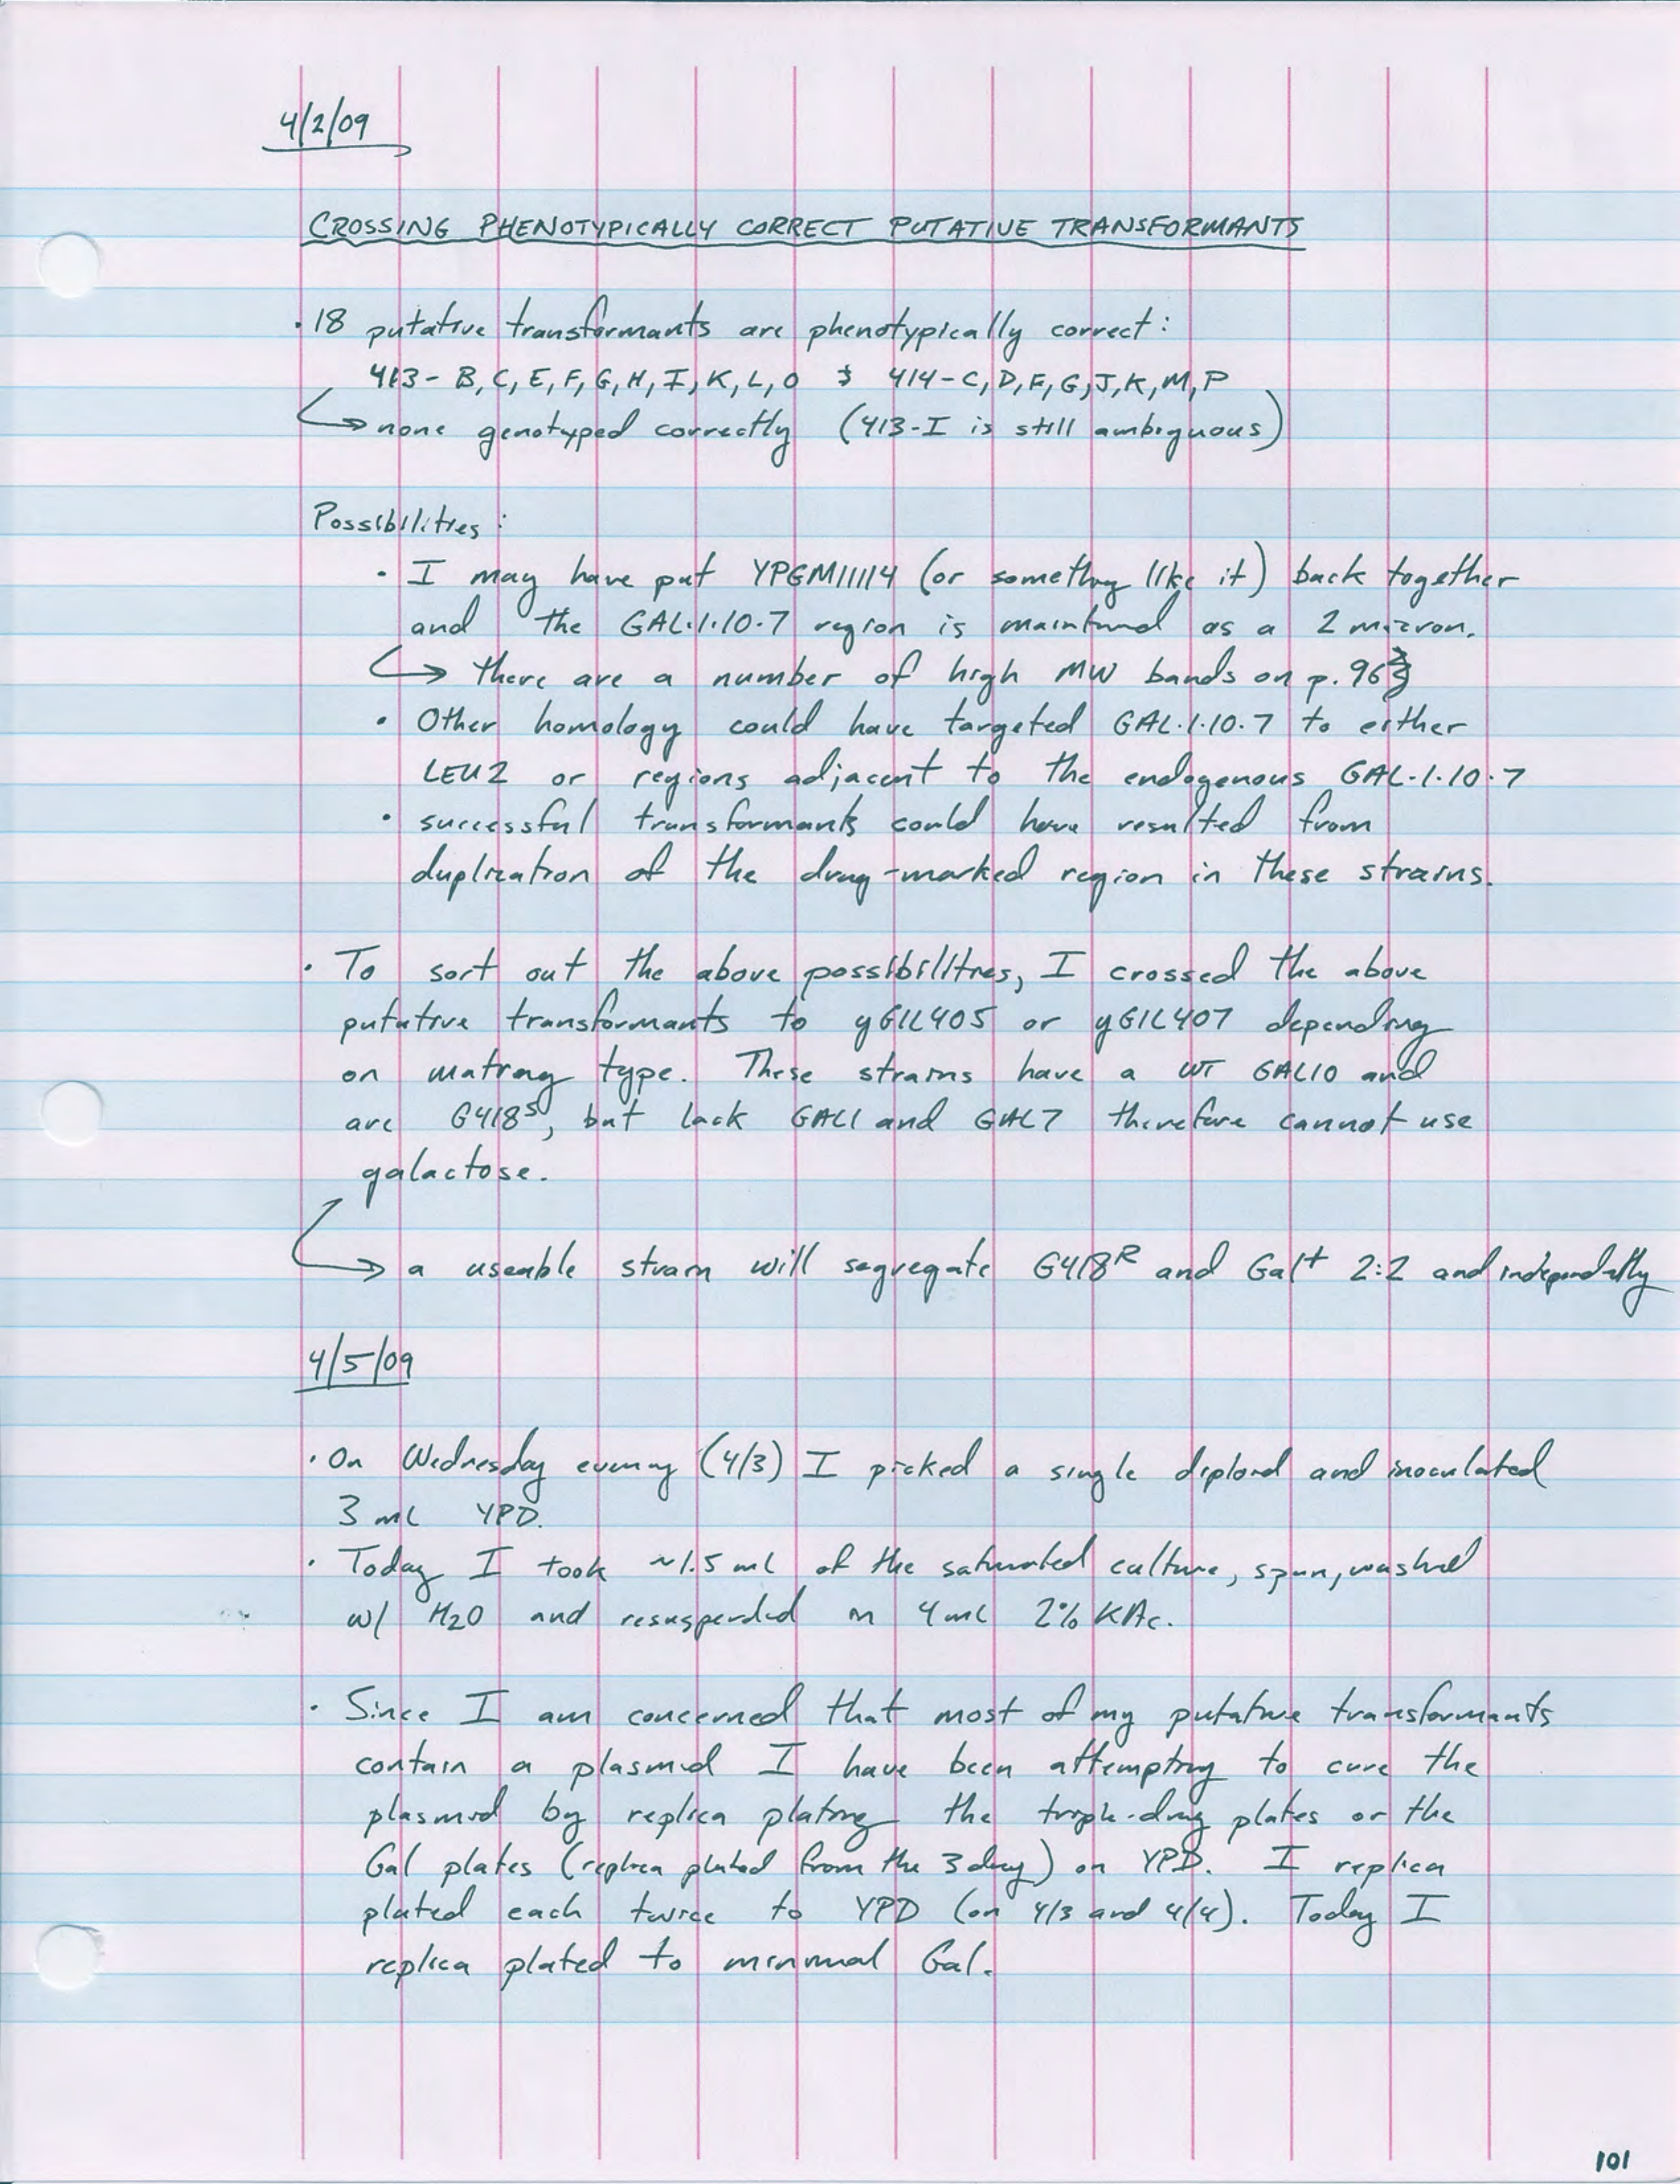 4/2/09
CROSSING PHENOTYPICALLY CORRECT PUTATIVE TRANSFORMANTS
· 18 putative transformants are phenotypically correct:
413- B, C, E, F, G, H, I, K, L, O & 414-C, D, F, G, J, K, M, P
↳ none genotyped correctly (413-I is still ambiguous)
Possibilities:
· I may have put YPGM11114 (or something like it) back together
and the GAL·1·10·7 region is maintained as a 2 micron.
↳ there are a number of high MW bands on p. 96
· Other homology could have targeted GAL·1·10·7 to either
LEU2 or regions adjacent to the endogenous GAL·1·10·7
· successful transformants could have resulted from
duplication of the drug-marked region in these strains.
· To sort out the above possibilities, I crossed the above
putative transformants to yGIL405 or yGIL407 depending
on mating type. These strains have a WT GAL10 and
are G418ˢ, but lack GAL1 and GAL7 therefore cannot use
galactose.
↳ a useable strain will segregate G418ᴿ and Gal⁺ 2:2 and independently
4/5/09
· On Wednesday evening (4/3) I picked a single diploid and inoculated
3 mL YPD.
· Today I took ~1.5 mL of the saturated culture, spun, washed
w/ H2O and resuspended in 4mL 2% KAc.
· Since I am concerned that most of my putative transformants
contain a plasmid I have been attempting to cure the
plasmid by replica plating the triple-drug plates or the
Gal plates (replica plated from the 3 drug) on YPD. I replica
plated each twice to YPD (on 4/3 and 4/4). Today I
replica plated to minimal Gal.
101